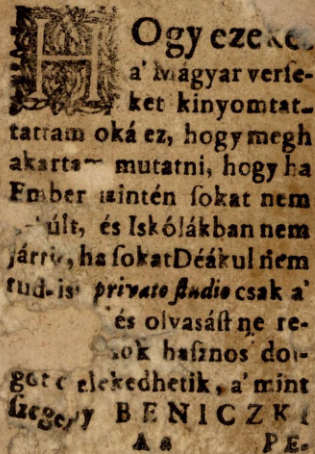 HOgy ezeket
a' Magyar verſe-
ket kinyomtat-
tattam oká ez, hogy megh
akartam mutatni, hogy ha
Ember mintén ſokat nem
és Iskólákban nem
járris, ha ſokat Déákul nem
tud-is privato ſtudio csak a'
és olvasáſt ne re-
ſok haſznos dol-
got cselekedhetik, a' mint
ſzegeny BENICZKI
A a PE-